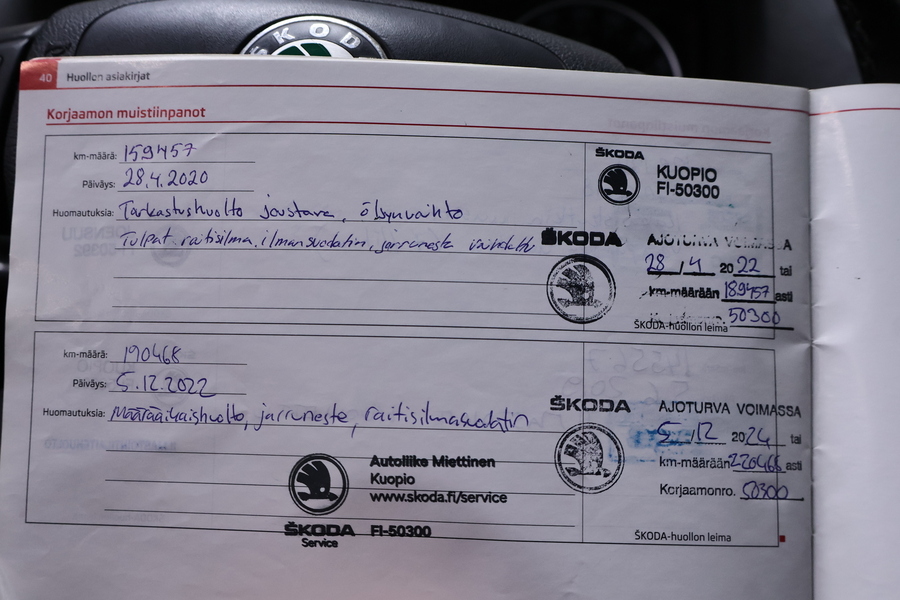 ŠKODA
40 Huollon asiakirjat
Korjaamon muistiinpanot
km-määrä: 159457
Päiväys: 28.4.2020
Huomautuksia: Tarkastushuolto joustava, öljynvaihto
Tulpat, raitisilma, ilmansuodatin, jarruneste vaihdettu
ŠKODA
KUOPIO
FI-50300
ŠKODA
AJOTURVA VOIMASSA
28 / 4 2022 tai
km-määrään 189457 asti
50300
ŠKODA-huollon leima
km-määrä: 190468
Päiväys: 5.12.2022
Huomautuksia: Määräaikaishuolto, jarruneste, raitisilmasuodatin
ŠKODA
AJOTURVA VOIMASSA
5 / 12 2024 tai
km-määrään 220468 asti
Korjaamonro. 50300
Autoliike Miettinen
Kuopio
www.skoda.fi/service
ŠKODA
Service
FI-50300
ŠKODA-huollon leima